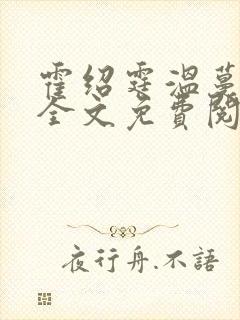 霍绍霆温蔓
全文免費閱
夜行舟.不語